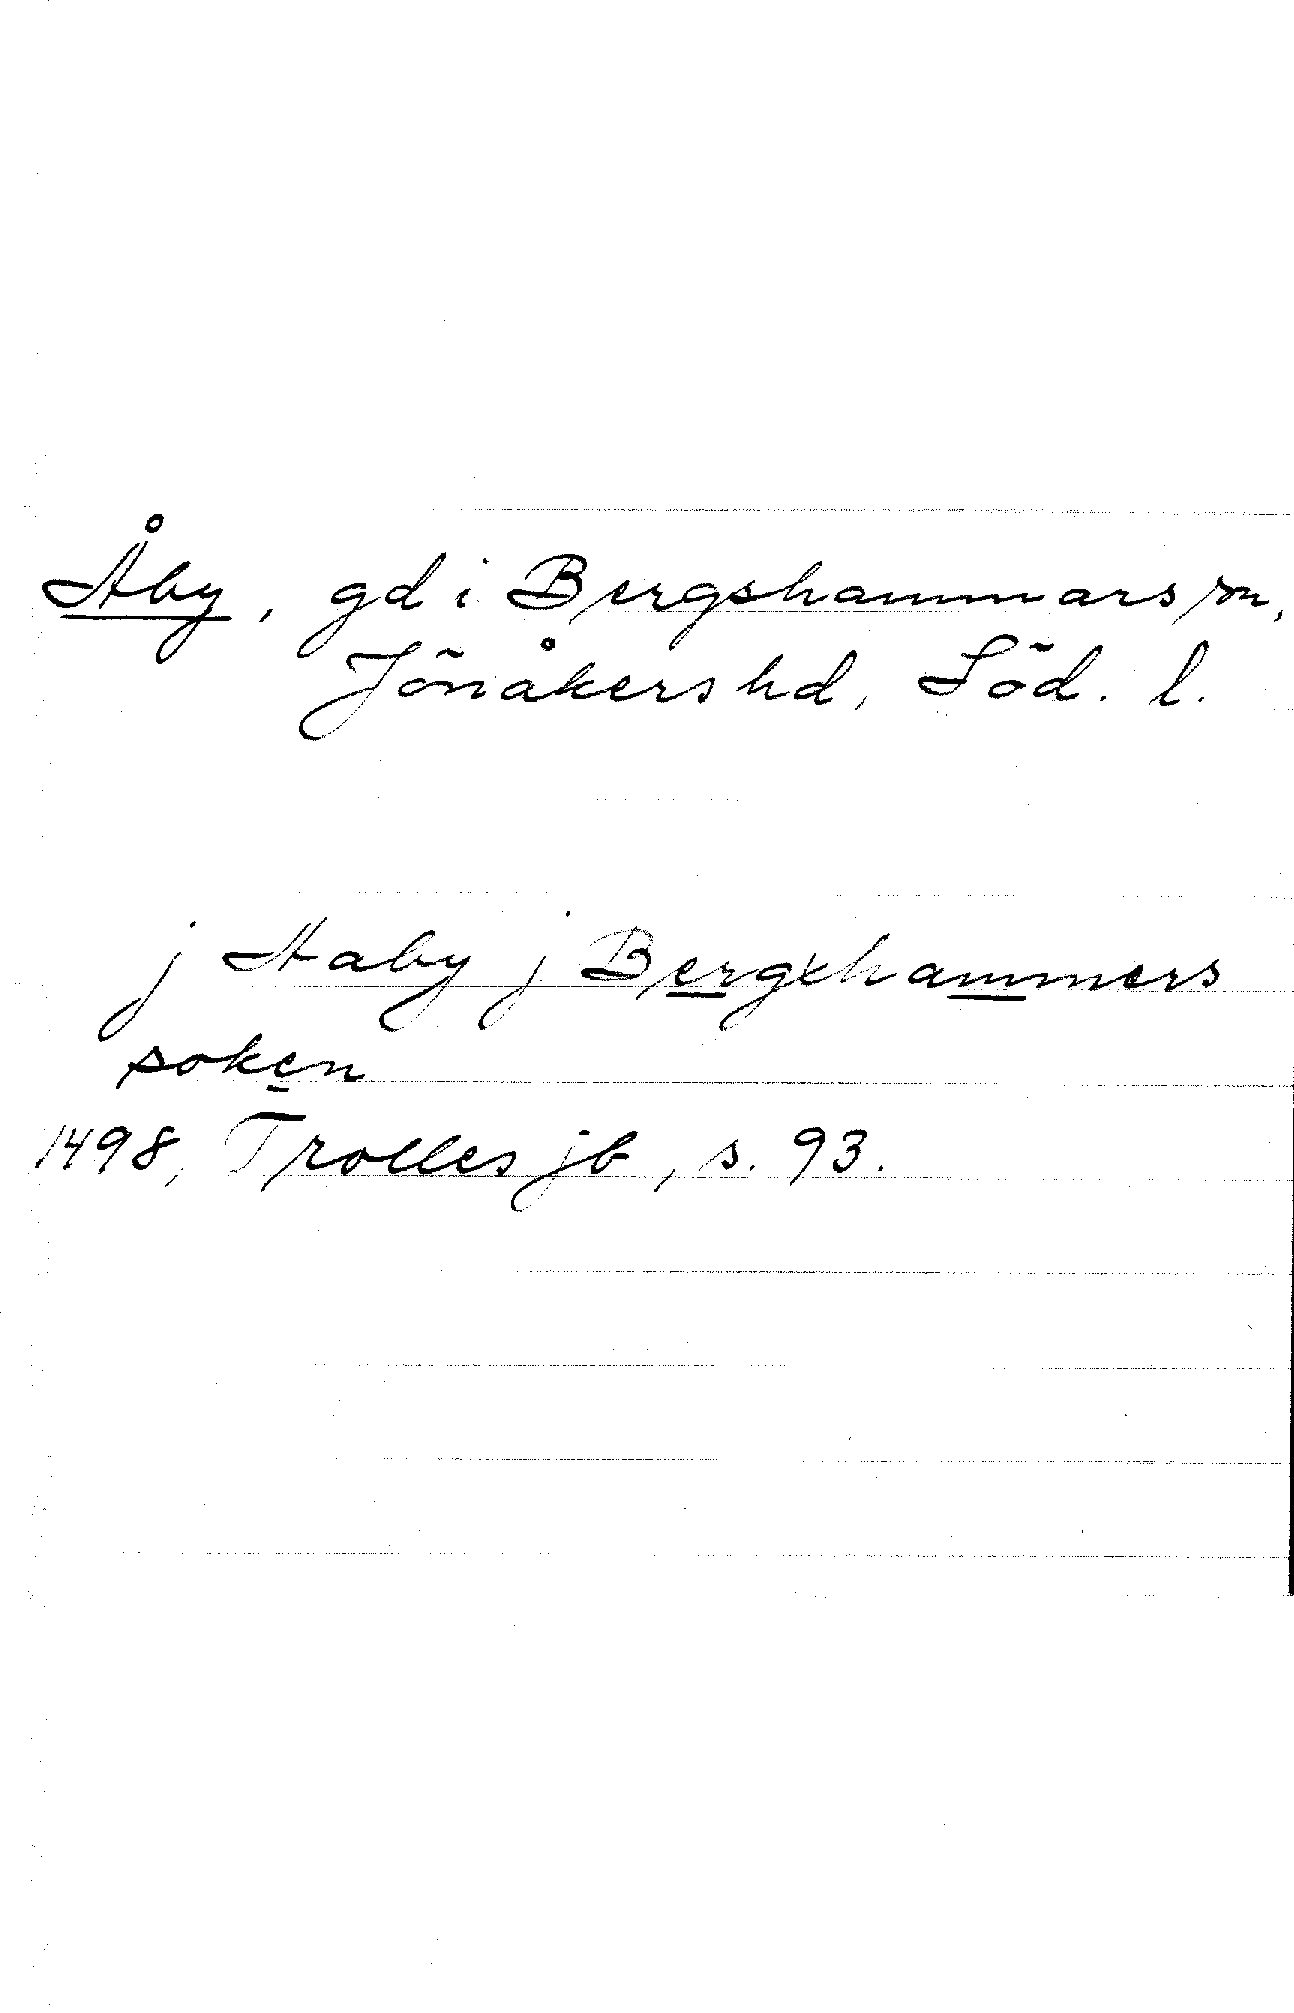 Åby, gd i Bergshammars sn,
Jönåkers hd, Söd. l.
j Aaby j Bergxhammers
soken
1498, Trolles jb, s. 93.